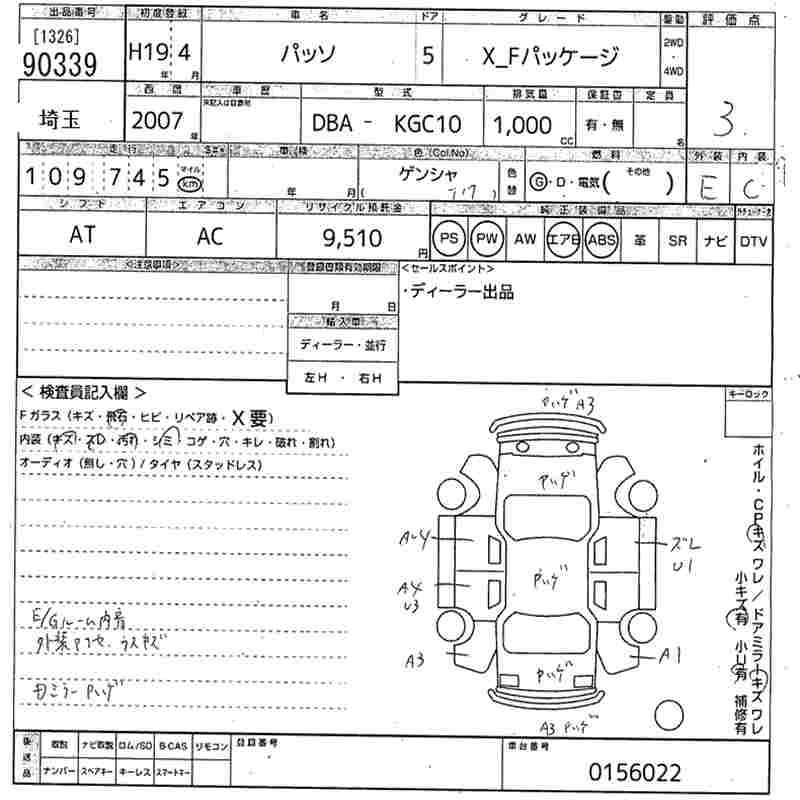 出品番号 初度登録 車名 ドア グレード 駆動 評価点
[1326]
90339 H19年 4月 パッソ 5 X_Fパッケージ 2WD・4WD 3.
西暦 車歴 型式 排気量 保証書 定員
埼玉 2007年 DBA - KGC10 1,000cc 有・無 名
走行 車検 色(Col.No) 燃料 外装 内装
109,745 マイル km 年 月 ゲンシャ 色替 G・D・電気 (その他) E C
シフト エアコン リサイクル預託金 純正装備品
AT AC 9,510円 PS PW AW エアB ABS 革 SR ナビ DTV
<注意事項> 登録書類有効期限 <セールスポイント>
月 日 ・ディーラー出品
輸入車
ディーラー・並行
左H ・ 右H
<検査員記入欄> キーロック
Fガラス (キズ・飛石・ヒビ・リペア跡・X要)
内装 (キズ・ズレ・汚れ・シミ・コゲ・穴・キレ・破れ・割れ)
オーディオ (無し・穴) / タイヤ (スタッドレス)
ハゲ A3
ハゲ
A-4 ズレ
U1
A4 ハゲ
U3
A3 A1
ハゲ
A3 ハゲ
E/Gルーム内音
ミラー ハゲ
ホイル・CPキズワレ/ドアミラーキズワレ
小キズ有 小U有 補修有
後送品 取説 ナビ取説 ロム/SD B-CAS リモコン 登録番号 車台番号
ナンバー スペアキー キーレス スマートキー 0156022